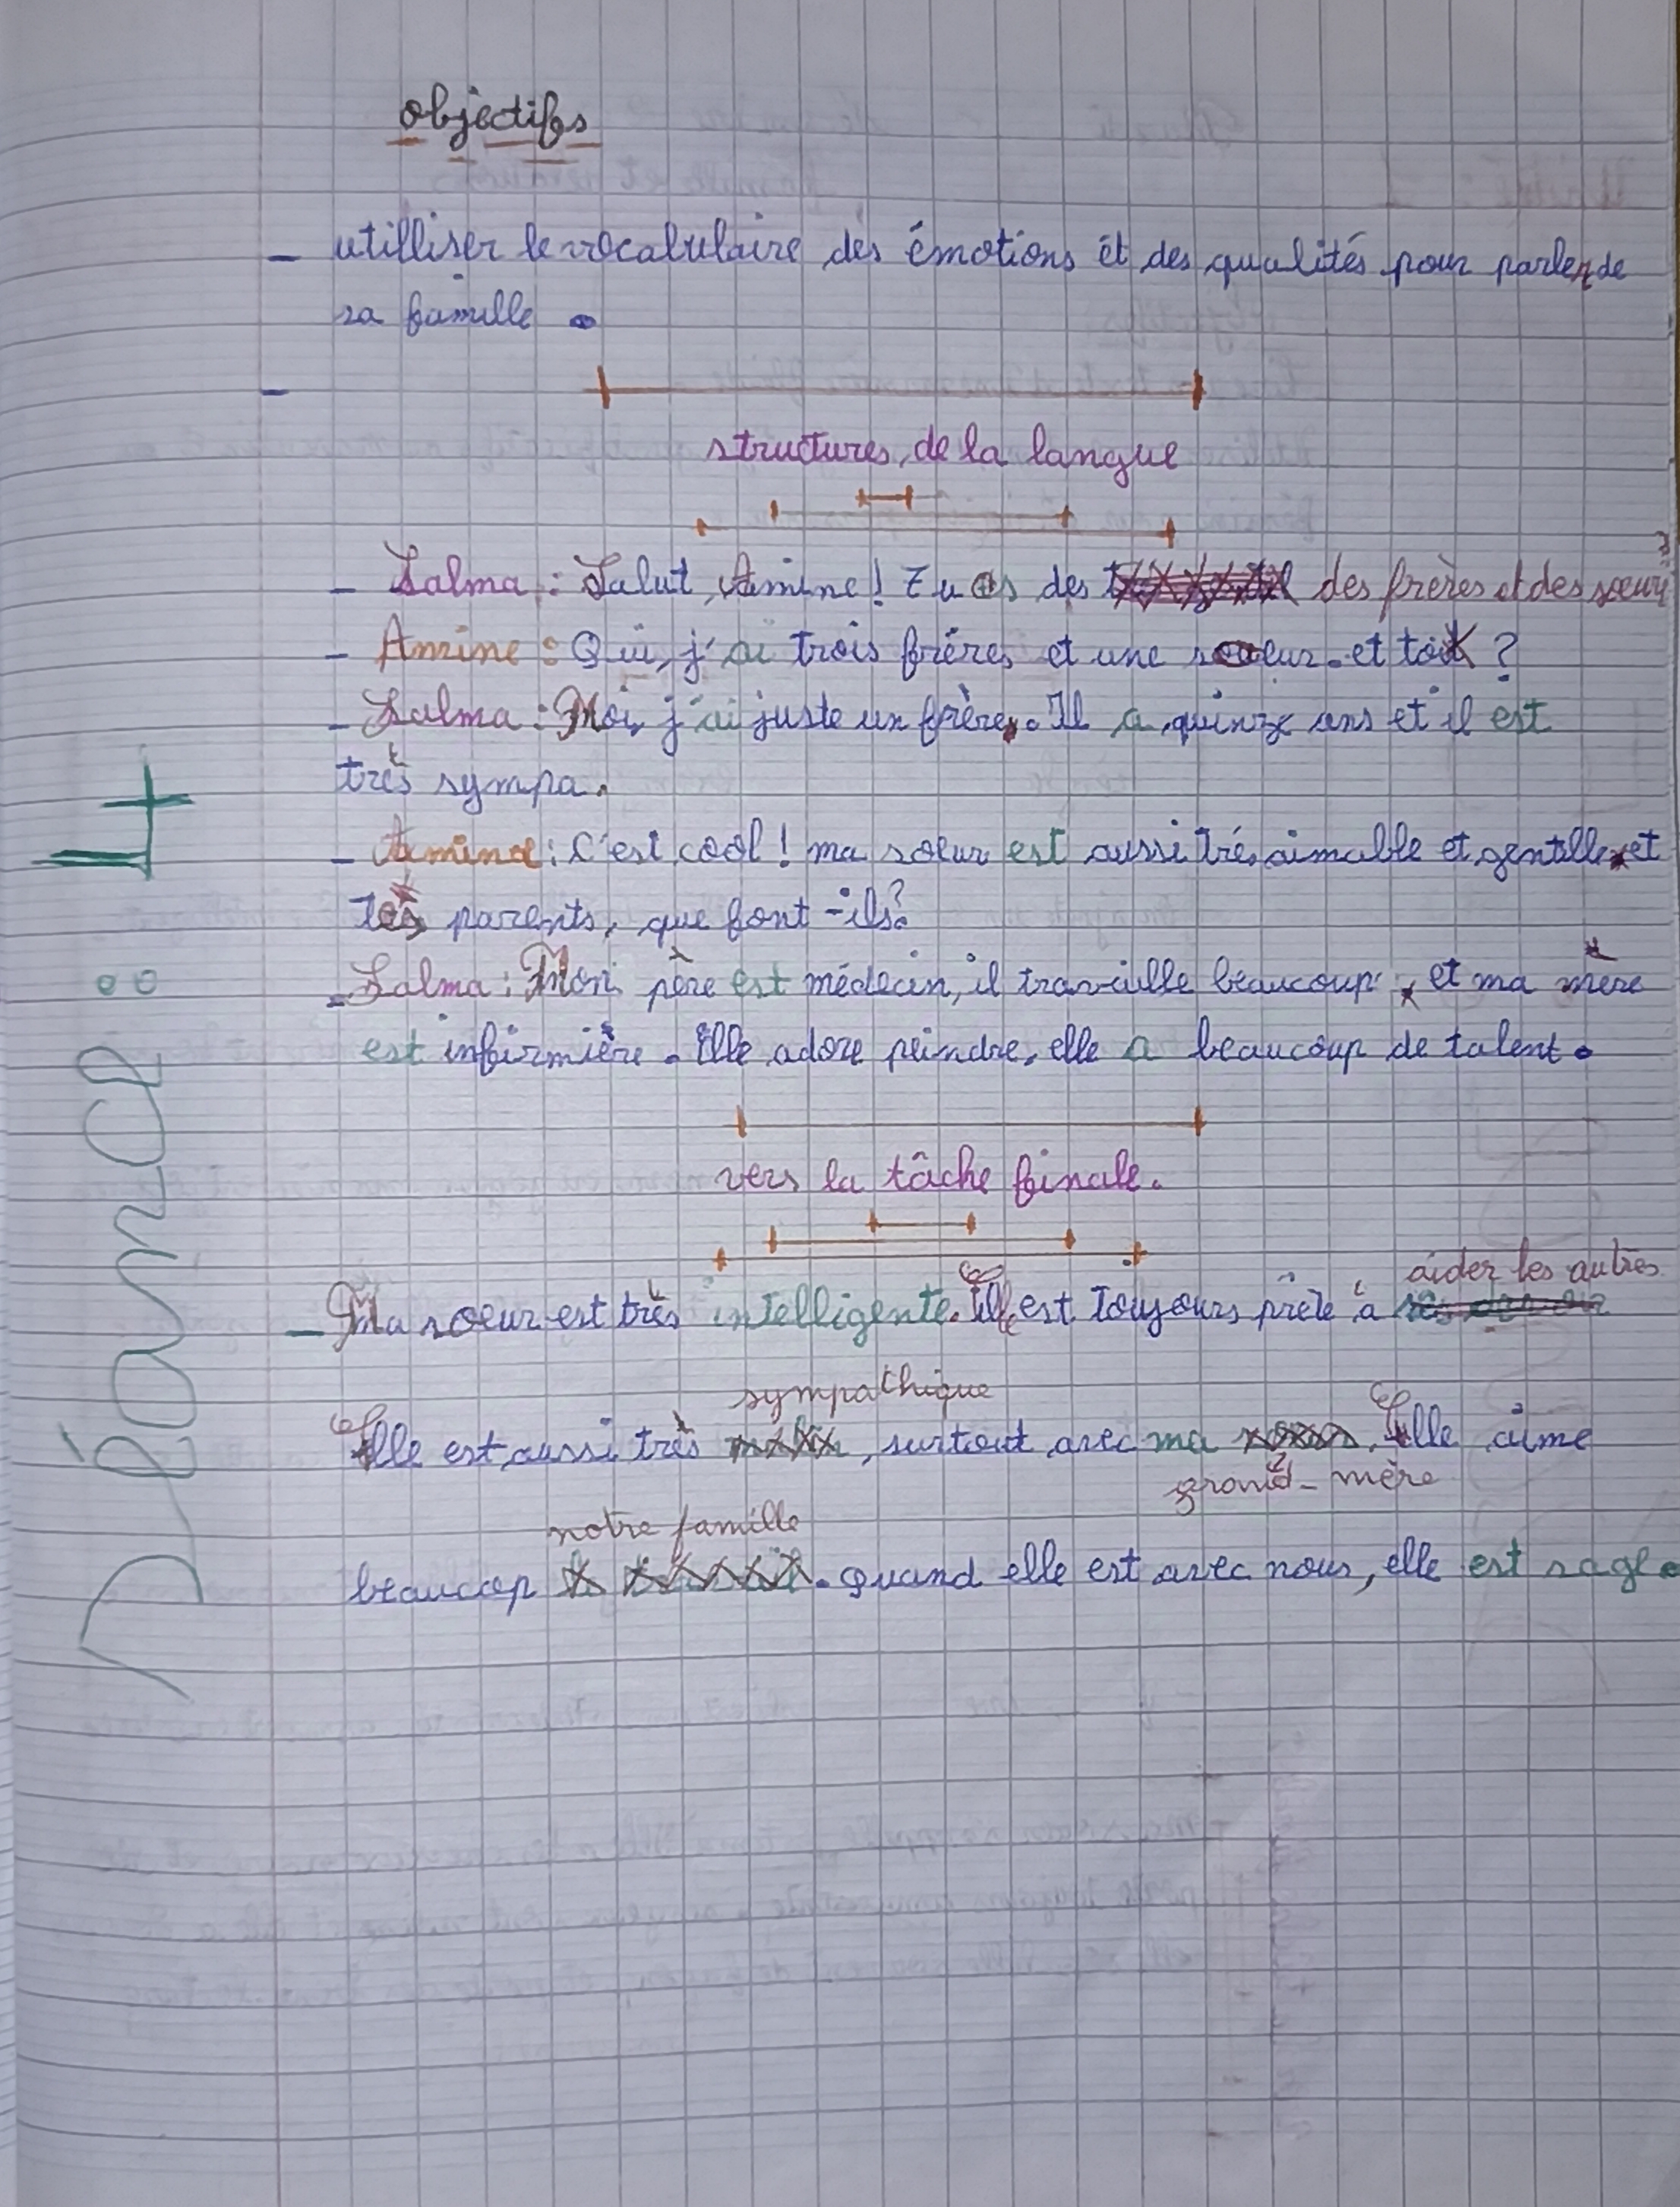 objectifs
- utilliser le vocabulaire des émotions ét des qualités pour parler de
sa famille.
-
structures de la langue
- Salma : Salut Amine ! Tu as des des frères et des sœurs ?
- Amine : Oui, j'ai trois fréres et une soeur. et toi ?
- Salma : Moi, j'ai juste un frère. Il a quinze ans et il est
très sympa.
- Amine : C'est cool ! ma soeur est aussi trés aimable et gentille et
tes parents, que font-ils ?
- Salma : Mon père est médecin, il travaille beaucoup, et ma mère
est infirmière. Elle adore peindre, elle a beaucoup de talent.
vers la tâche finale.
aider les autres
- Ma soeur est très intelligente. Elle est toujours prête à
sympathique
Elle est aussi très , surtout avec ma . Elle aime
grand-mère
notre famille
beaucop . quand elle est avec nous, elle est sage.
Séance : 4